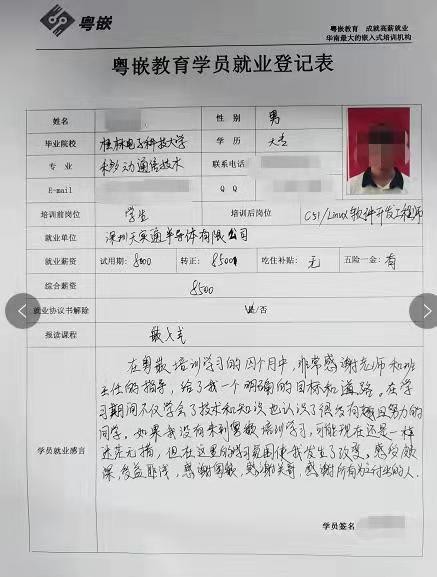 粤嵌
粤嵌教育 成就高薪就业
华南最大的嵌入式培训机构
粤嵌教育学员就业登记表
姓名 性别 男
毕业院校 桂林电子科技大学 学历 大专
专业 移动通信技术 联系电话
E-mail Q Q
培训前岗位 学生 培训后岗位 C51/Linux软件开发工程师
就业单位 深圳天深通半导体有限公司
就业薪资 试用期: 8000 转正: 8500 吃住补贴: 无 五险一金: 有
综合薪资 8500
就业协议书解除 是/否
报读课程 嵌入式
在粤嵌培训学习的四个月中,非常感谢老师和班
主任的指导,给了我一个明确的目标和道路。在学
习期间不仅学会了技术和知识也认识了很多有趣且努力的
同学。如果我没有来到粤嵌培训学习,可能现在还是一样
迷茫无措,但在这里的学习氛围使我发生了改变,感受颇
深,受益匪浅,感谢粤嵌,感谢老师,感谢所有为之付出的人.
学员就业感言
学员签名